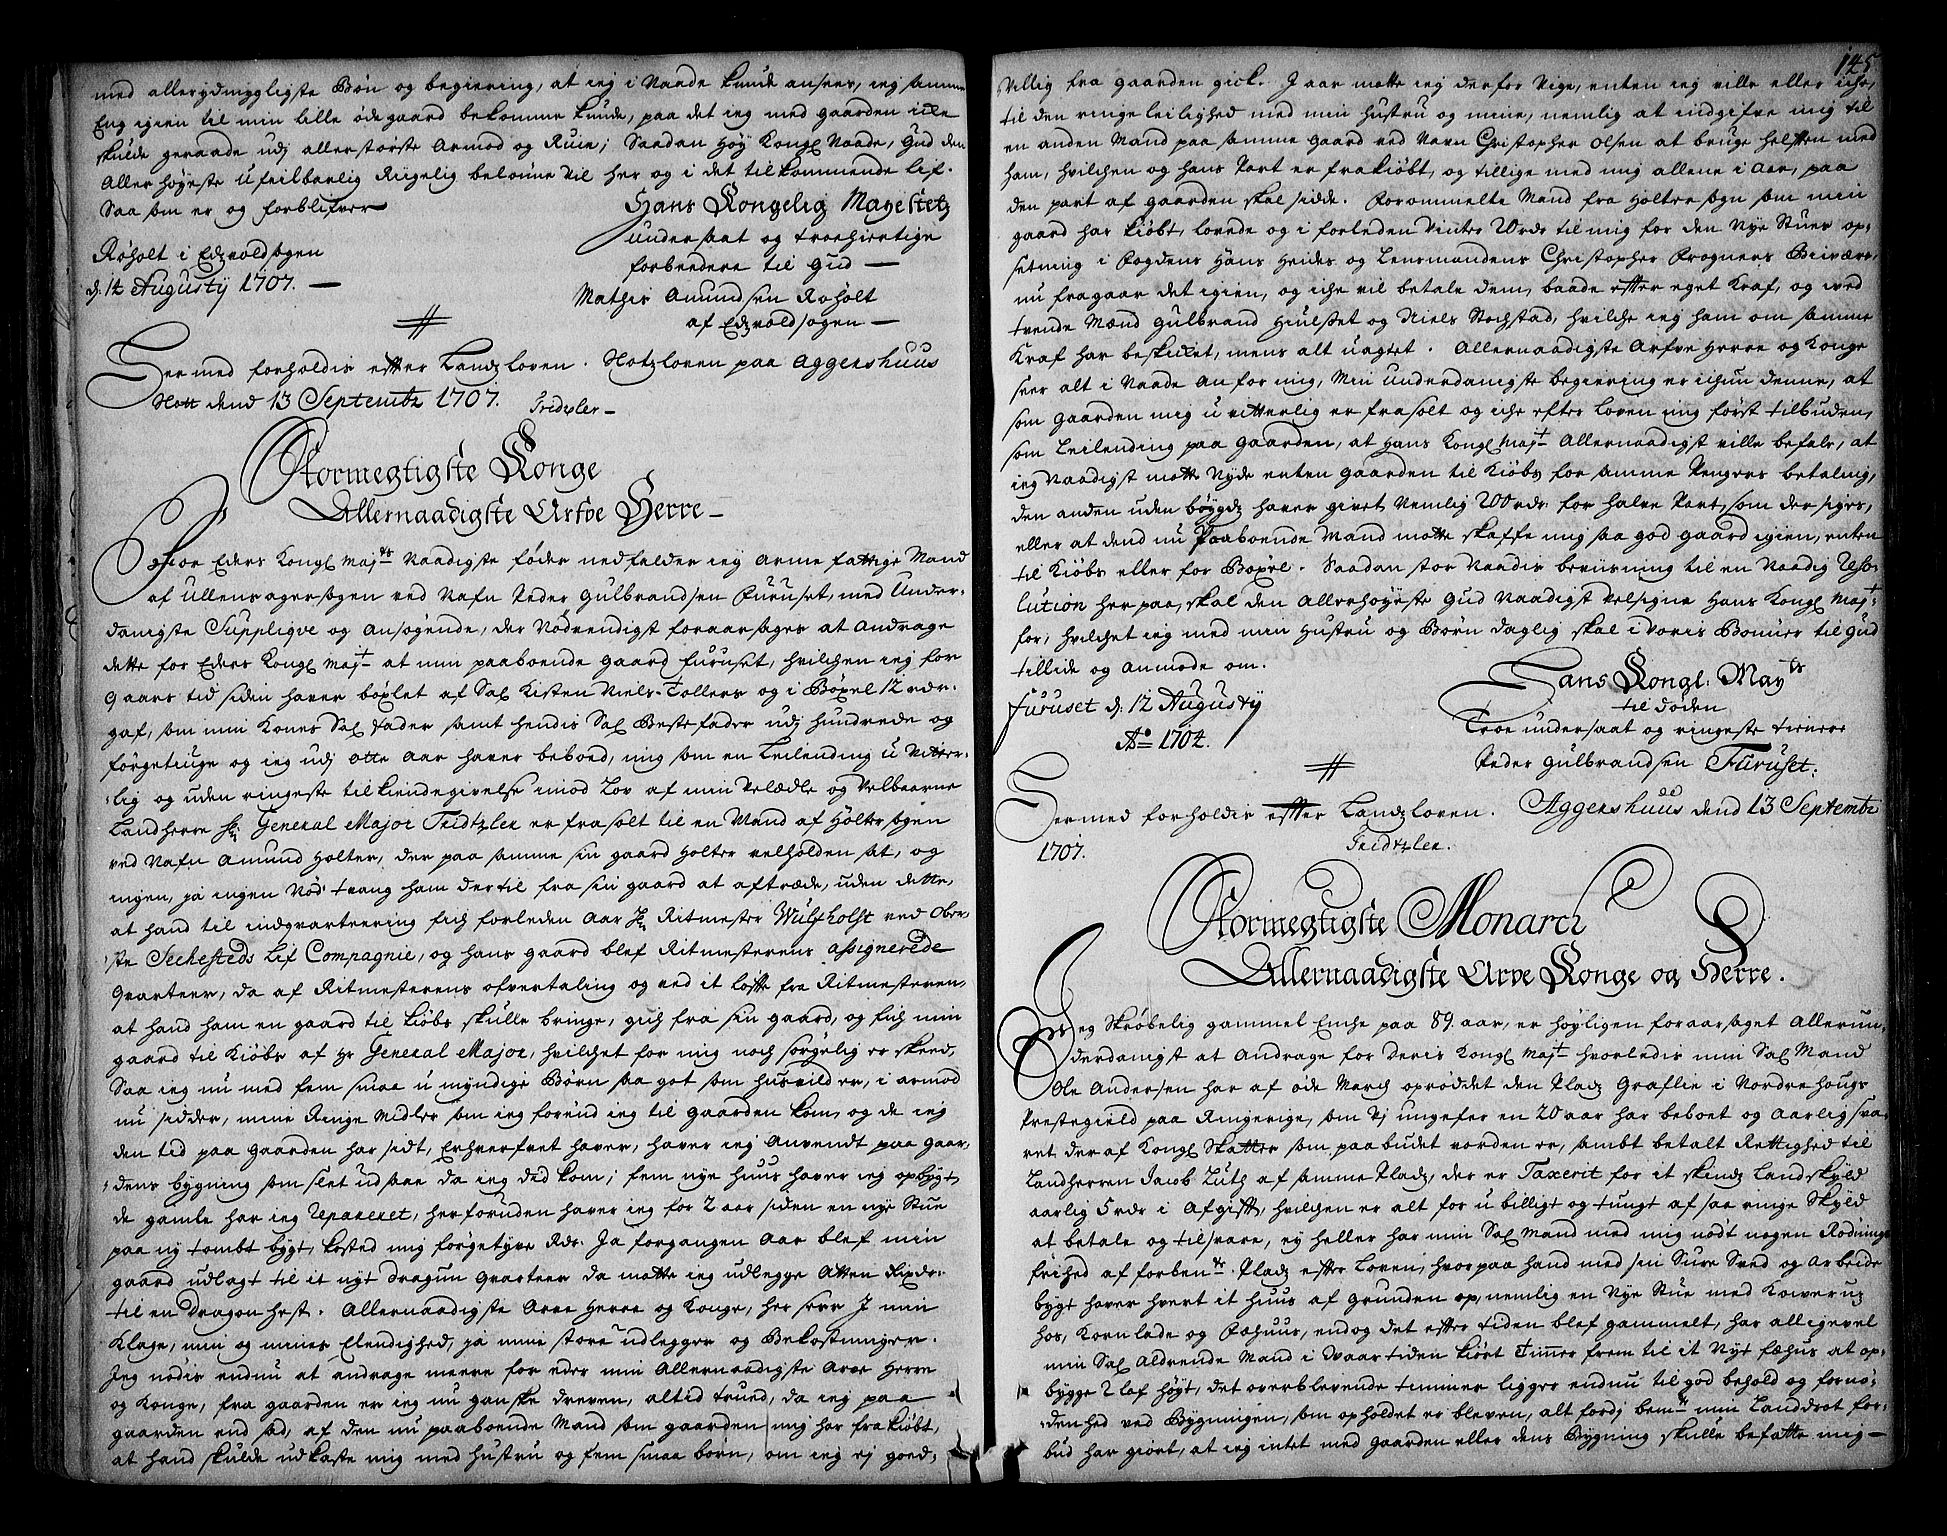 med allerydmygligste Bøn og begiering, at ieg i Naade kunde ansees, ieg samme
Eng igien til min lille øde gaard bekomme kunde, paa det ieg med gaarden icke
skulde geraade udj allerstörste Armod og Ruin; Saadan Høy Kongl Naade, Gud den
Aller høyeste ufeilbarlig Rigelig belønne vil her og i det tilkommende lif.
Saa som er og forblifver
Hans Kongelig Mayestetz
undersaat og troehiertige
forbedere til Gud
Røholt i Edzvoldsogen
d: 12 Augustij 1707.
Mathis Amundsen Roholt
af Edzvoldsogen
Hermed forholdis efter Landzloven. Slotzloven paa Aggershuus
Slott dend 13 Septembr 1707. Tridtzler
Stormegtigste Konge
Allernaadigste Arfve Herre
For Eders Kongl Majts Naadigste føder nedfalder ieg arme fattige Mand
af Ullensagersogen ved Nafn Peder Gulbrandsen Furuset, med Under-
danigste Supplique og Ansøgende, der Nødvendigst foraarsages at Andrage
dette for Eders Kongl Majt at min paaboende gaard furuset, hvilchen ieg for
9 aars tid siden haver böxlet af Sal Kisten Niels Tollers og i Böxel 12 rdr
gaf, som min Kones Sal fader samt hendis Sal Bestefader udj hundrede og
førgetiuge og ieg udj otte aar haver beboed, mig som en Leilending uvitter-
lig og uden ringeste tilkiendegivelse imod Lov af min Velædle og Velbaarne
Landherre Hr General Major Tridtzler er frasolt til en Mand af Holtersogen
ved Nafn Amund Holter, der paa samme sin gaard Holter velholden sat, og
ingen, ja ingen Nöd tvang ham dertil fra sin gaard at aftræde, uden dette,
at hand til indqvarteering fich forleden Aar Hr Ritmester Wulfholst ved Ober-
ste Seehesteds Lif Compagnie, og hans gaard blef Ritmesterens assignerede
Qvarteer, da af Ritmesterens ofvertaling og ved it löfte fra Ritmesteren,
at hand ham en gaard til kiöbs skulle bringe, gich fra sin gaard, og fich min
gaard til Kiöbs af Hr General Major, hvilchet for mig noch sorgelig er skeed,
Saa ieg nu med fem smaa umyndige Børn saa got som husvild er, i armod
nu sidder, mine Ringe Midler som ieg forend ieg til gaarden kom, og de ieg
den tid paa gaarden har sidt, Erhverfvet haver, haver ieg Anvendt paa gaar-
dens bygning som slet ud saae da ieg did kom; fem nye huus haver ieg opbygt,
de gamle har ieg Repareret, herforuden haver ieg for 2 aar siden en nye Stue
paa ny tombt bygt, kosted mig førgetyve Rdr. Ja forgangen Aar blef min
gaard udlagt til it nyt Dragun Qvarteer da matte ieg udlegge Atten Rixdr.
til en Dragon hest. Allernaadigste Arve Herre og Konge, her seer I min
Klage, min og mines Elendighed, ja mine store udlegger og Bekostninger.
Jeg nödis endnu at andrage meere for eder min Allernaadigste Arve Herre
og Konge, fra gaarden er ieg nu ganske dreven, altid trued, da ieg paa
gaarden end sad, af den nu paaboende Mand som gaarden mig har frakiöbt,
at hand skulde udkaste mig med Hustru og fem smaa born, om ieg ej goed,
145
villig fra gaarden gick. J aar motte ieg derfor vige, enten ieg ville eller iche,
til den ringe leilighed med min Hustru og mine, nemlig at indgifve mig til
en anden Mand paa samme gaard ved Navn Christopher Olsen at bruge helften med
ham, hvilchen og hans Part er frakiöbt, og tillige med mig allene i aar, paa
den part af gaarden skal sidde. Forommelte Mand fra Holtersogn som min
gaard har kiöbt, lovede og i forleden Vinter 20 rdr til mig for den Nye Stuer op-
setning i Fogdens Hans Heides og Lensmandens Christopher Frogners Biværs,
nu fragaar det igien, og iche vil betale dem, baade efter eget Kraf, og ved
tvende Mænd Gulbrand Hiulset og Niels Stochstad, hvilche ieg ham om samme
Kraf har beskicket, mens alt uagtet. Allernaadigste Arfve Herre og Konge
seer alt i Naade an for mig, Min Underdanigste begiering er ichun denne, at
som gaarden mig uvitterlig er frasolt og iche efter Loven mig först tilbuden,
som Leilending paa gaarden, at Hans Kongl Majt Allernaadigst ville befale, at
ieg Naadigst motte Nyde enten gaarden til Kiöbs for samme Penges betaling,
den anden uden bøygds haver givet Nemlig 200 rdr for halve Part, som der siges,
eller at dend nu Paaboende Mand motte skaffe mig saa god gaard igien, enten
til Kiöbs eller for Boxel. Saadan stor Naadis beviisning til en Naadig Reso-
lution her paa, skal den Allerhøyeste Gud Naadigst Velsigne Hans Kongl Majt
for, hvilchet ieg med min Hustru og Börn daglig skal i voris Bønner til Gud
tillide og anmode om.
Hans Kongl: Mayts
til döden
Troe undersaat og ringeste tienere
Peder Gulbrandsen Furuset.
furuset d: 12 Augustij
Ao 1704.
Hermed forholdis efter Landzloven. Aggershuus dend 13 Septembr
1707. Tridtzler.
Stormegtigste Monarch
Allernaadigste Arve Konge og Herre.
Jeg Skröbelig gammel Enche paa 89 aar, er høyligen foraarsaget Allerun-
derdanigst at Andrage for Deris Kongl Majt hvorledis min Sal Mand
Ole Andersen har af øde March oprøddet den Plads Graflie i Nordrehougs
Prestegield paa Ringerige, som Vj ungefer en 20 aar har beboet og aarlig sva-
ret der af Kongl Skatter som paabudet vorden er, sambt betalt Rettighed til
Landherren Jacob Luth af samme Plads, der er Taxerit for it skindz Landskyld
aarlig 5 rdr i Afgift, hvilchen er alt for ubilligt og tungt af saa ringe Skyld
at betale og tilsvare, ey heller har min Sal Mand med mig nødt nogen Rødnings
frihed af forbente Plads efter Loven, hvorpaa hand med sin Sure Sved og Arbeide
bygt haver hvert it huus af grunden op, nemlig en Nye Stue med Kowerus
hos, Kornlade og Fæhuus, endog det efter tiden blef gammelt, har alligevel
min Sal Aldrende Mand i Svaar tiden kiört Timer frem til it Nyt fæhus at op-
bygge 2 laf høyt, det overblevende timmer ligger endnu til god behold og forno-
denhed ved Bygningen, som opholdet er bleven, alt fordj bemte min Landdrot for-
bud har giort, at ieg intet med Gaarden eller dens Bygning skulle befatte mig